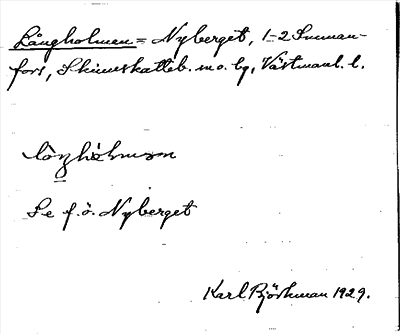 Långholmen = Nyberget, 1-2 Sunnan-
fors, Skinnskatteb. sn o. bg, Västmanl. l.
Se f. ö. Nyberget
Karl Björkman 1929.